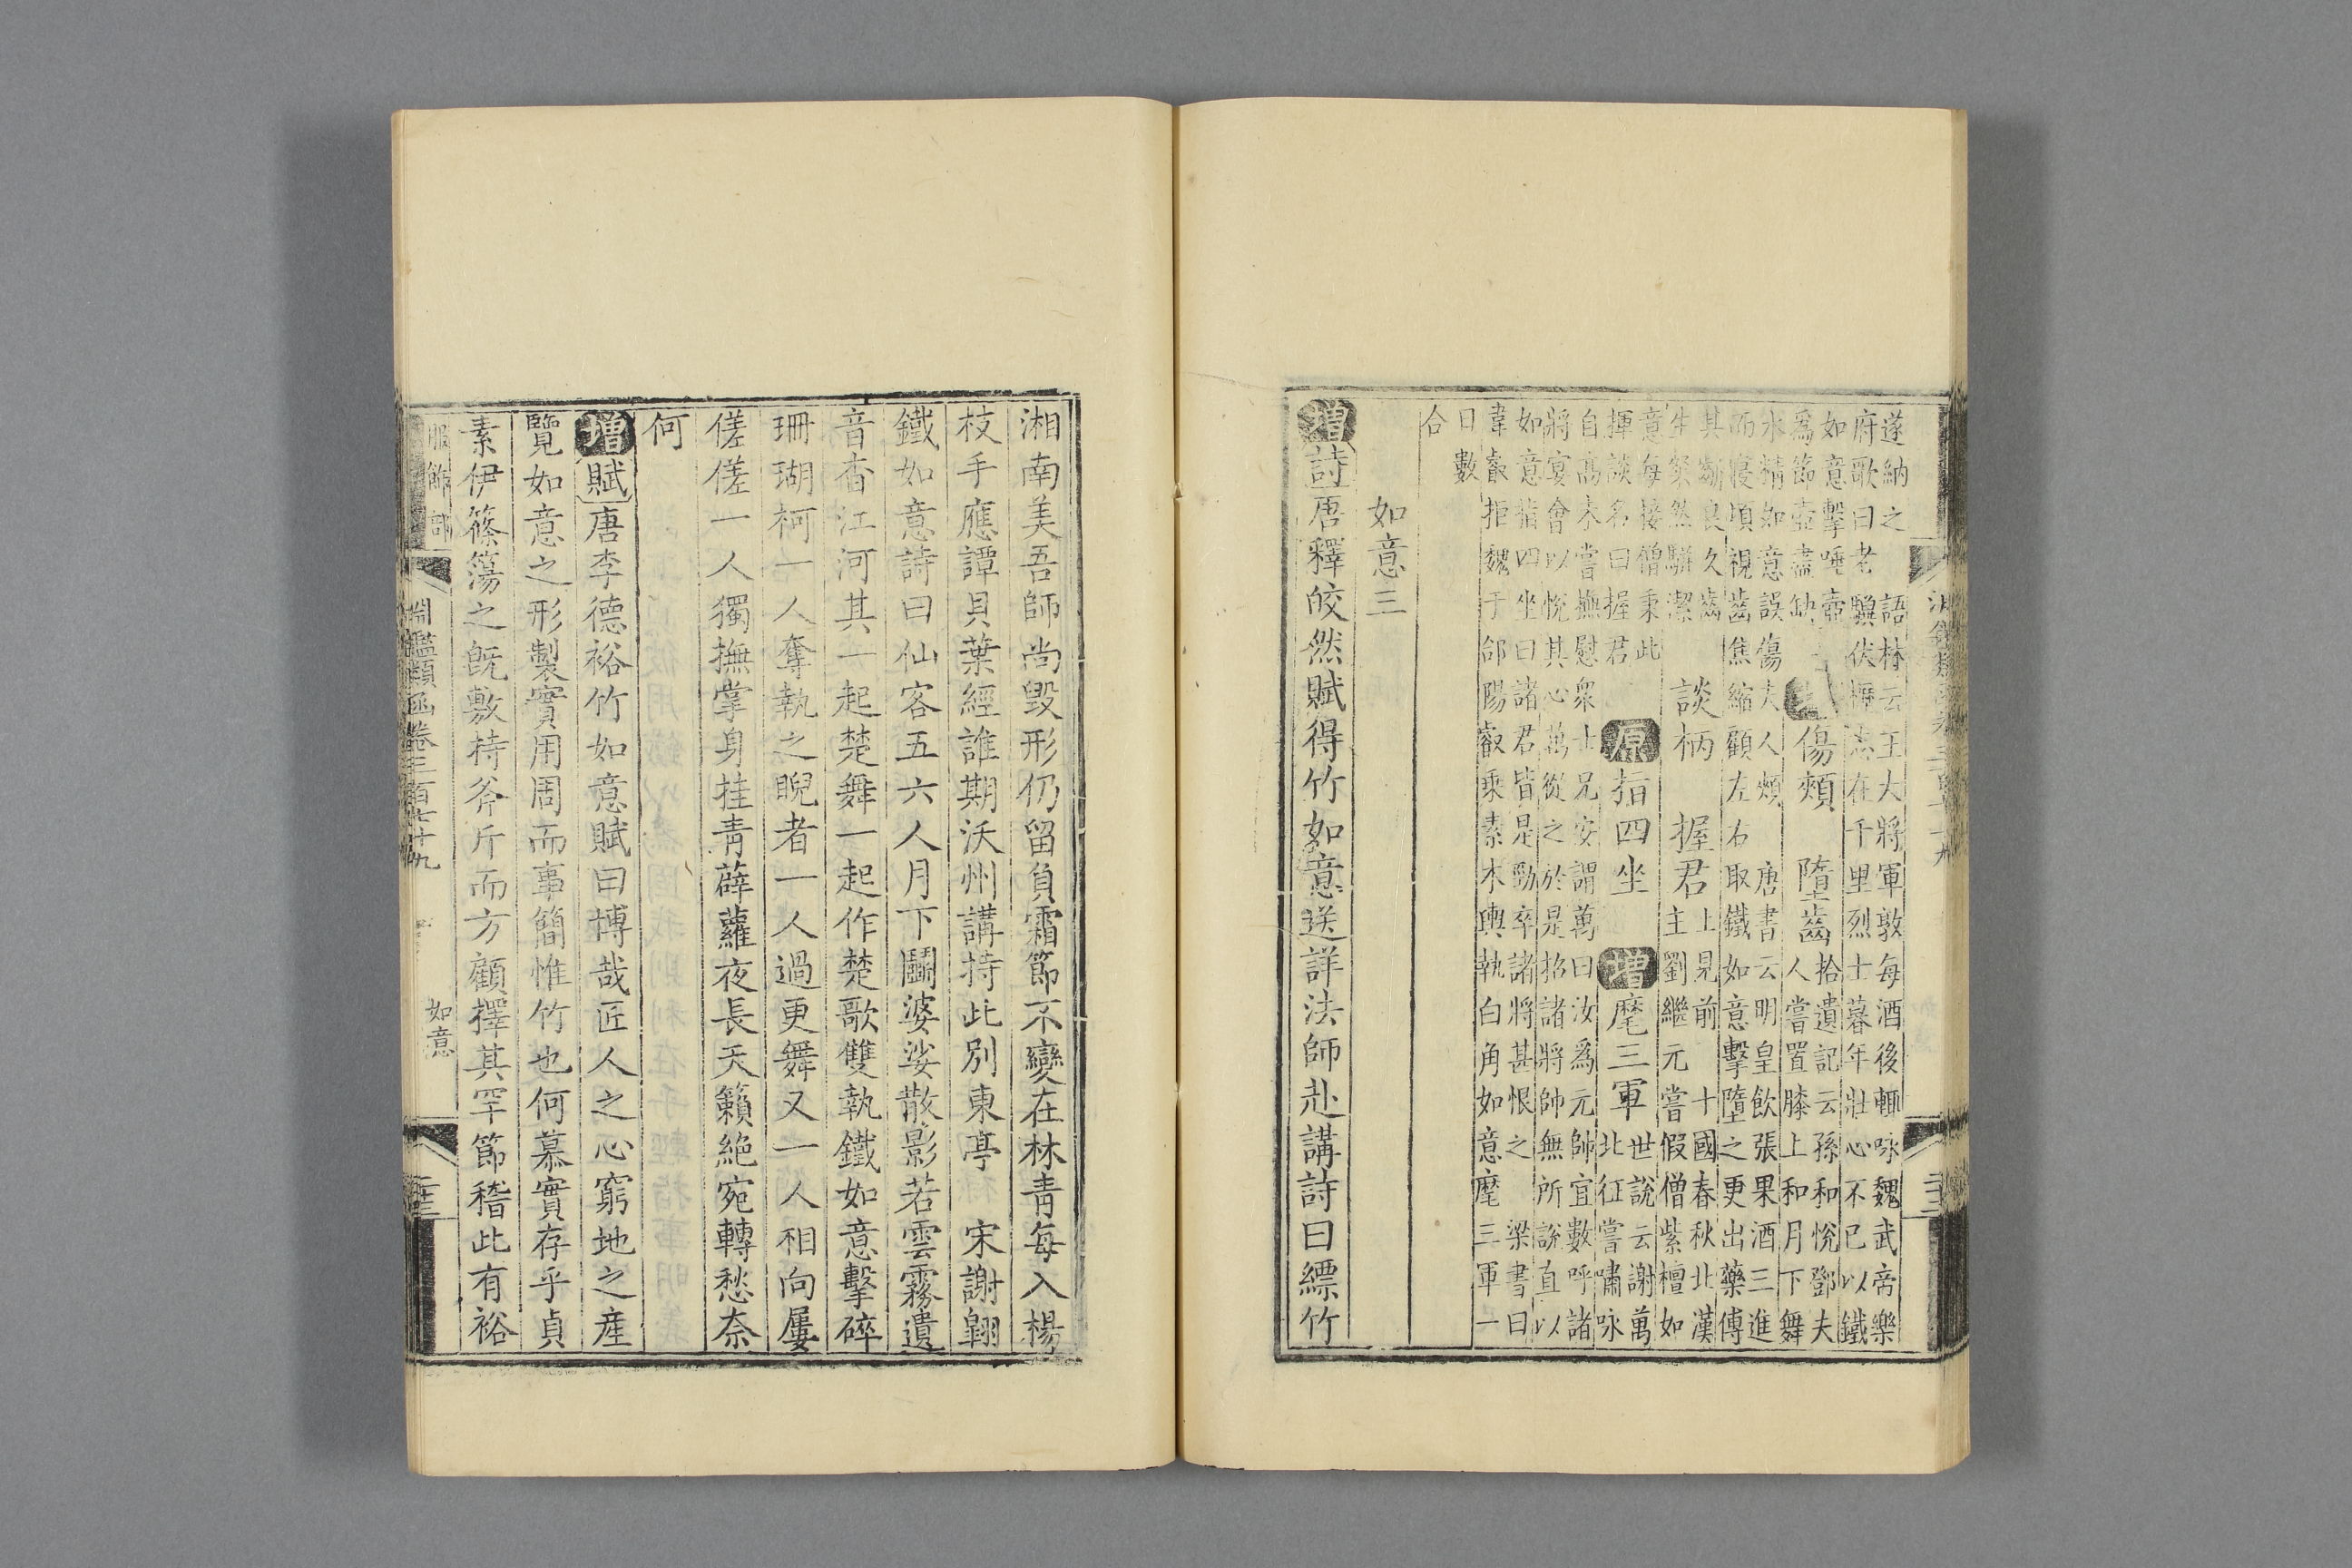 遂納之 語林云王大將軍敦每酒後輒咏魏武帝樂
府歌曰老驥伏櫪志在千里烈士暮年壯心不已以鐵
如意擊唾壺
為節壺盡缺
傷頰 墮齒
拾遺記云孫和悅鄧夫
人嘗置膝上和月下舞
水精如意誤傷夫人頰 唐書云明皇飲張果酒三進
而寢頃視齒焦縮顧左右取鐵如意擊墮之更出藥傅
其齗良久齒
生粲然駢潔
談柄 握君
上見前 十國春秋北漢
主劉繼元嘗假僧紫檀如
意每接僧秉此
揮談名曰握君
原指四坐 增麾三軍
世說云謝萬
北征嘗嘯咏
自高未嘗撫慰衆士兄安謂萬曰汝爲元帥宜數呼諸
將宴會以悅其心萬從之於是招諸將帥無所說直以
如意指四坐曰諸君皆是勁卒諸將甚恨之 梁書曰
韋叡拒魏于郃陽叡乘素木輿執白角如意麾三軍一
日數
合
如意三
增詩唐釋皎然賦得竹如意送詳法師赴講詩曰縹竹
湘南美吾師尚毀形仍留負霜節不變在林青每入楊
枝手應譚貝葉經誰期沃州講持此別東亭 宋謝翺
鐵如意詩曰仙客五六人月下鬭婆娑散影若雲霧遺
音杳江河其一起楚舞一起作楚歌雙執鐵如意擊碎
珊瑚柯一人奪執之睨者一人過更舞又一人相向屢
傞傞一人獨撫掌身挂青薜蘿夜長天籟絶宛轉愁奈
何
增賦唐李德裕竹如意賦曰博哉匠人之心窮地之產
覽如意之形製實用周而事簡惟竹也何慕實存乎貞
素伊篠簜之旣敷持斧斤而方顧擇其罕節稽此有裕
服飾部 淵鑑類函卷三百七十九 如意 二十三